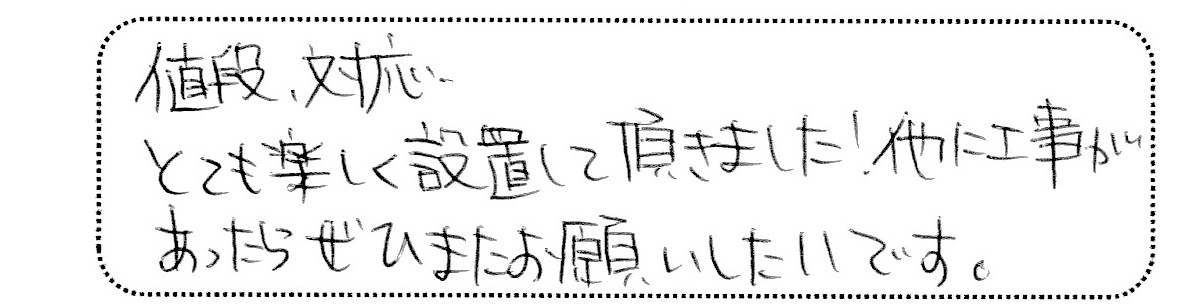 値段、対応
とても楽しく設置して頂きました！他に工事が
あったらぜひまたお願いしたいです。